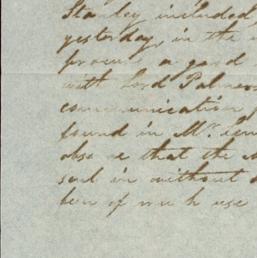 Stanley included
yesterday, in the
procure a good
with Lord Palmers
communication
found in Mr.
obse e that the
sent in without
ben of much use